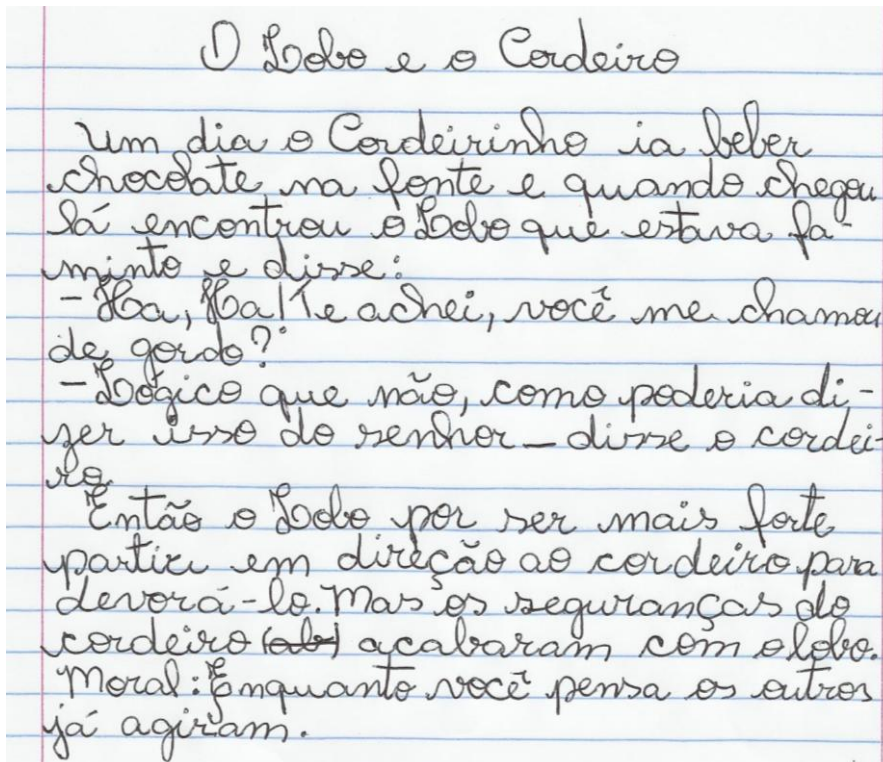 O Lobo e o Cordeiro
Um dia o Cordeirinho ia beber
chocolate na fonte e quando chegou
lá encontrou o Lobo que estava fa-
minto e disse:
- Ha, Ha! Te achei, você me chamou
de gordo?
- Lógico que não, como poderia di-
zer isso do senhor - disse o cordei-
ro.
Então o Lobo por ser mais forte
partiu em direção ao cordeiro para
devorá-lo. Mas os seguranças do
cordeiro acabaram com o lobo.
Moral: Enquanto você pensa os outros
já agiram.